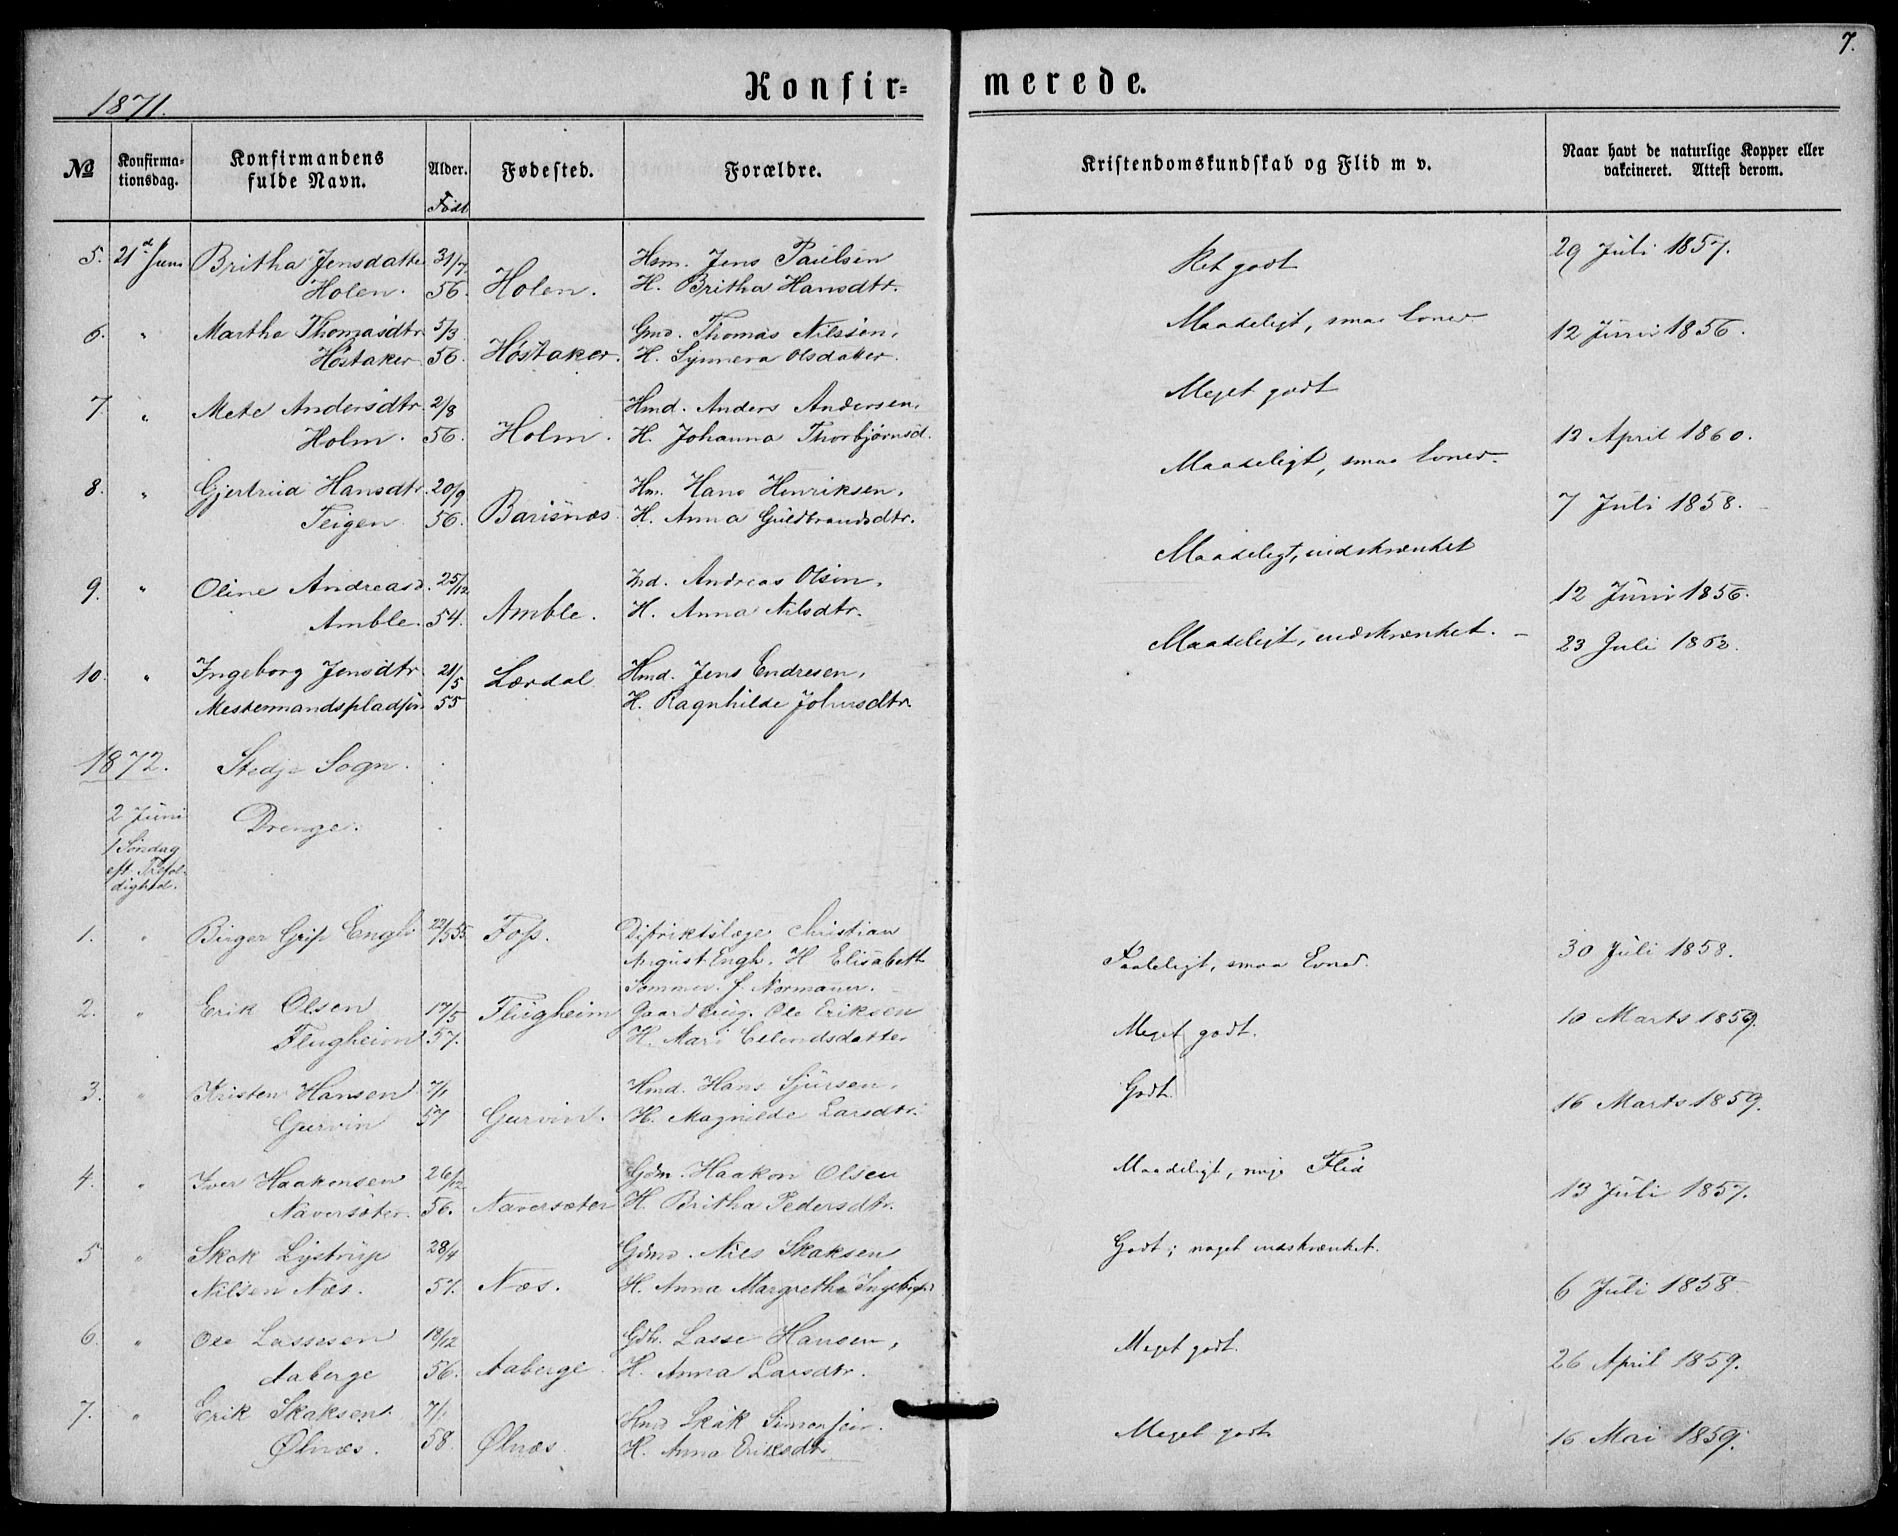 7.
1871.
Konfir= merede.
No
Konfirma-
tionsdag.
Konfirmandens
fulde Navn.
Alder.
Født
Fødested.
Forældre.
Kristendomskundskab og Flid m v.
Naar havt de naturlige Kopper eller
vakcineret. Attest derom.
5. 21d Juni Britha Jensdatter 31/7 Hsm. Jens Paulsen Ret godt 29 Juli 1857.
Holen. 56. Holen. H. Britha Hansdtr.
6. " Martha Thomasdtr. 5/3 Gmd. Thomas Nilsen, Maadeligt, smaa Evner. 12 Juni 1856.
Høstaker 56. Høstaker. H. Synneva Olsdatter.
7 " Mete Andersdtr. 2/8 Hmd. Anders Andersen, Meget godt 12 April 1860.
Holm. 56. Holm. H. Johanna Thorbjørnsd.
8. " Gjertrud Hansdtr. 20/9 Hm. Hans Henriksen, Maadeligt, smaa Evner. 7 Juli 1858.
Teigen 56. Barsnæs H. Anna Guldbrandsdtr.
9. " Oline Andreasd. 25/12 Ind. Andreas Olsen, Maadeligt, indskrænket 12 Juni 1856.
Amble. 54. Amble. H. Anna Nilsdtr.
10. " Ingeborg Jensdtr. 21/5 Lærdal Hmd. Jens Endresen, Maadeligt, indskrænket. 23 Juli 1862.
Mestermandspladsen 55 H. Ragnhilde Johnsdtr.
1872. Stedje Sogn.
2 Juni Drenge.
1 Søndag
eft. Trefol-
dighed.
1. " Birger Grip Engh 22/5 55 Foss. Distriktslæge Christian Maadeligt, smaa Evner. 30 Juli 1858.
August Engh. H Elisabeth
Sommer f. Normann.
2. " Erik Olsen 17/5 Flugheim Gaardbrug. Ole Eriksen Meget godt. 10 Marts 1859.
Flugheim 57. H. Mari Erlendsdatter
3. " Kristen Hansen 7/1 Hmd. Hans Sjursen, Godt. 16 Marts 1859.
Gurvin 57 Gurvin. H. Magnilde Larsdtr.
4. " Iver Haakonsen 26/12 Gdm. Haakon Olsen Maadeligt, Flid 13 Juli 1857.
Naversæter. 56. Naversæter H. Britha Pedersdtr.
5 " Skak Lystrup 28/4 Gdmd. Nils Skaksen Godt; noget indskrænket. 6 Juli 1858.
Nilsen Næs. 57. Næs. H. Anna Margrethe
6. " Ole Lassesen 18/12 Gdb. Lasse Hansen, Meget godt. 26 April 1859.
Aaberge 56. Aaberge. H. Anna Larsdtr.
7. " Erik Skaksen 7/1 Hmd Skak Simonsen. Meget godt 16 Mai 1859.
Ølnæs. 58. Ølnæs. H. Anna Eriksdtr.